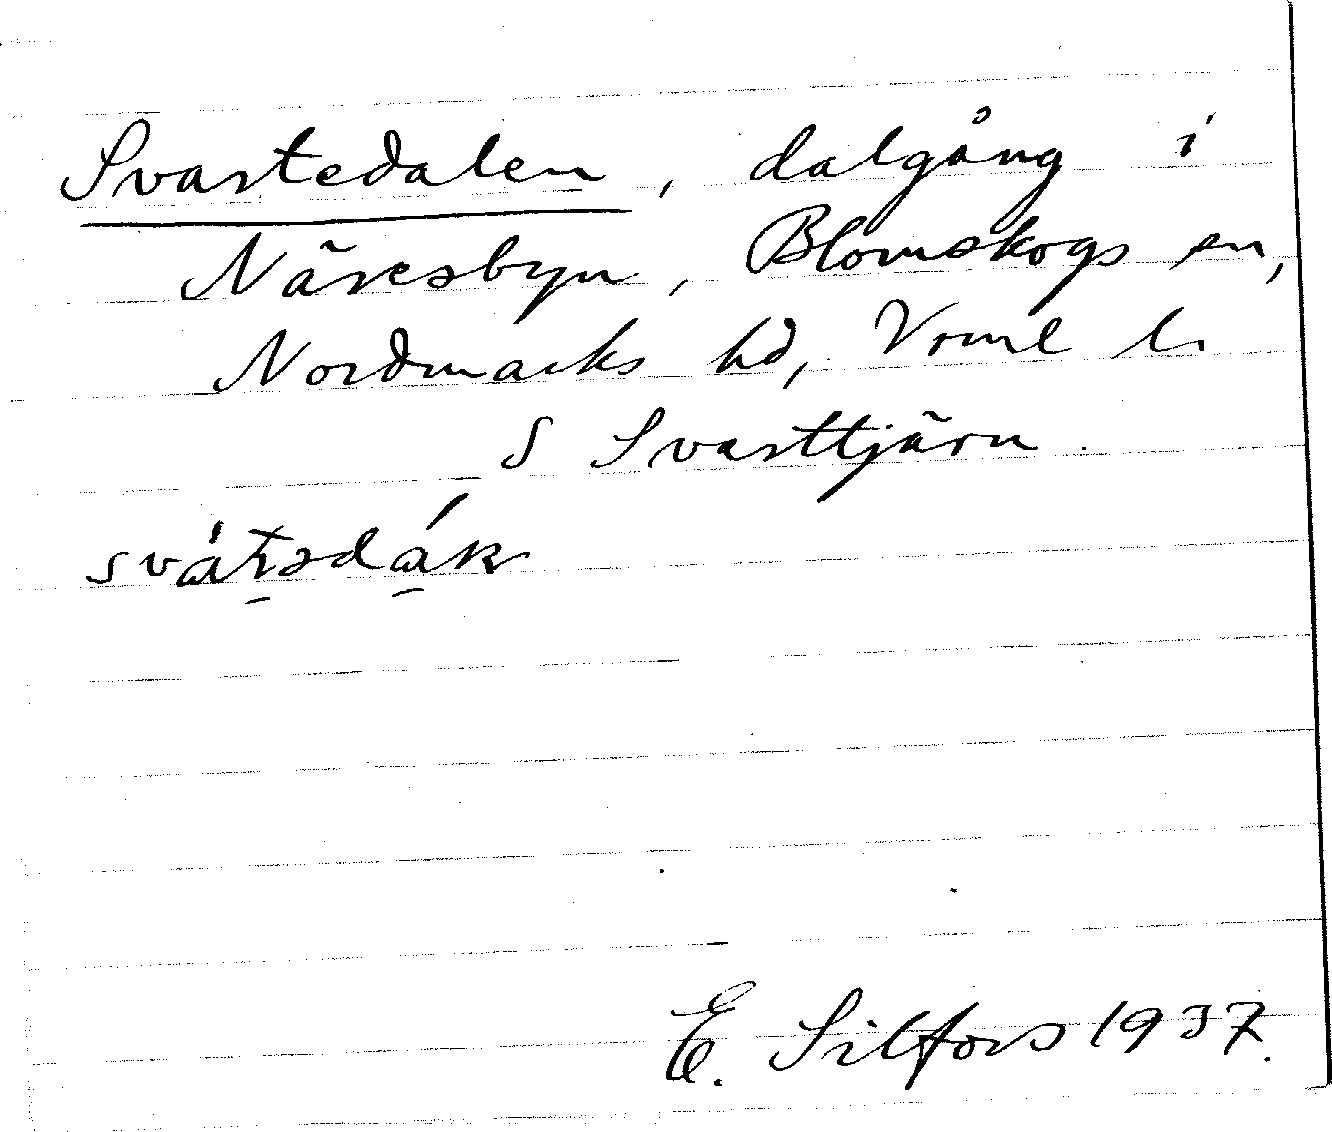 Svartedalen, dalgång i
Näresbyn, Blomskogs sn,
Nordmarks hd, Vrml l.
S Svarttjärn.
E. Silfors 1937.